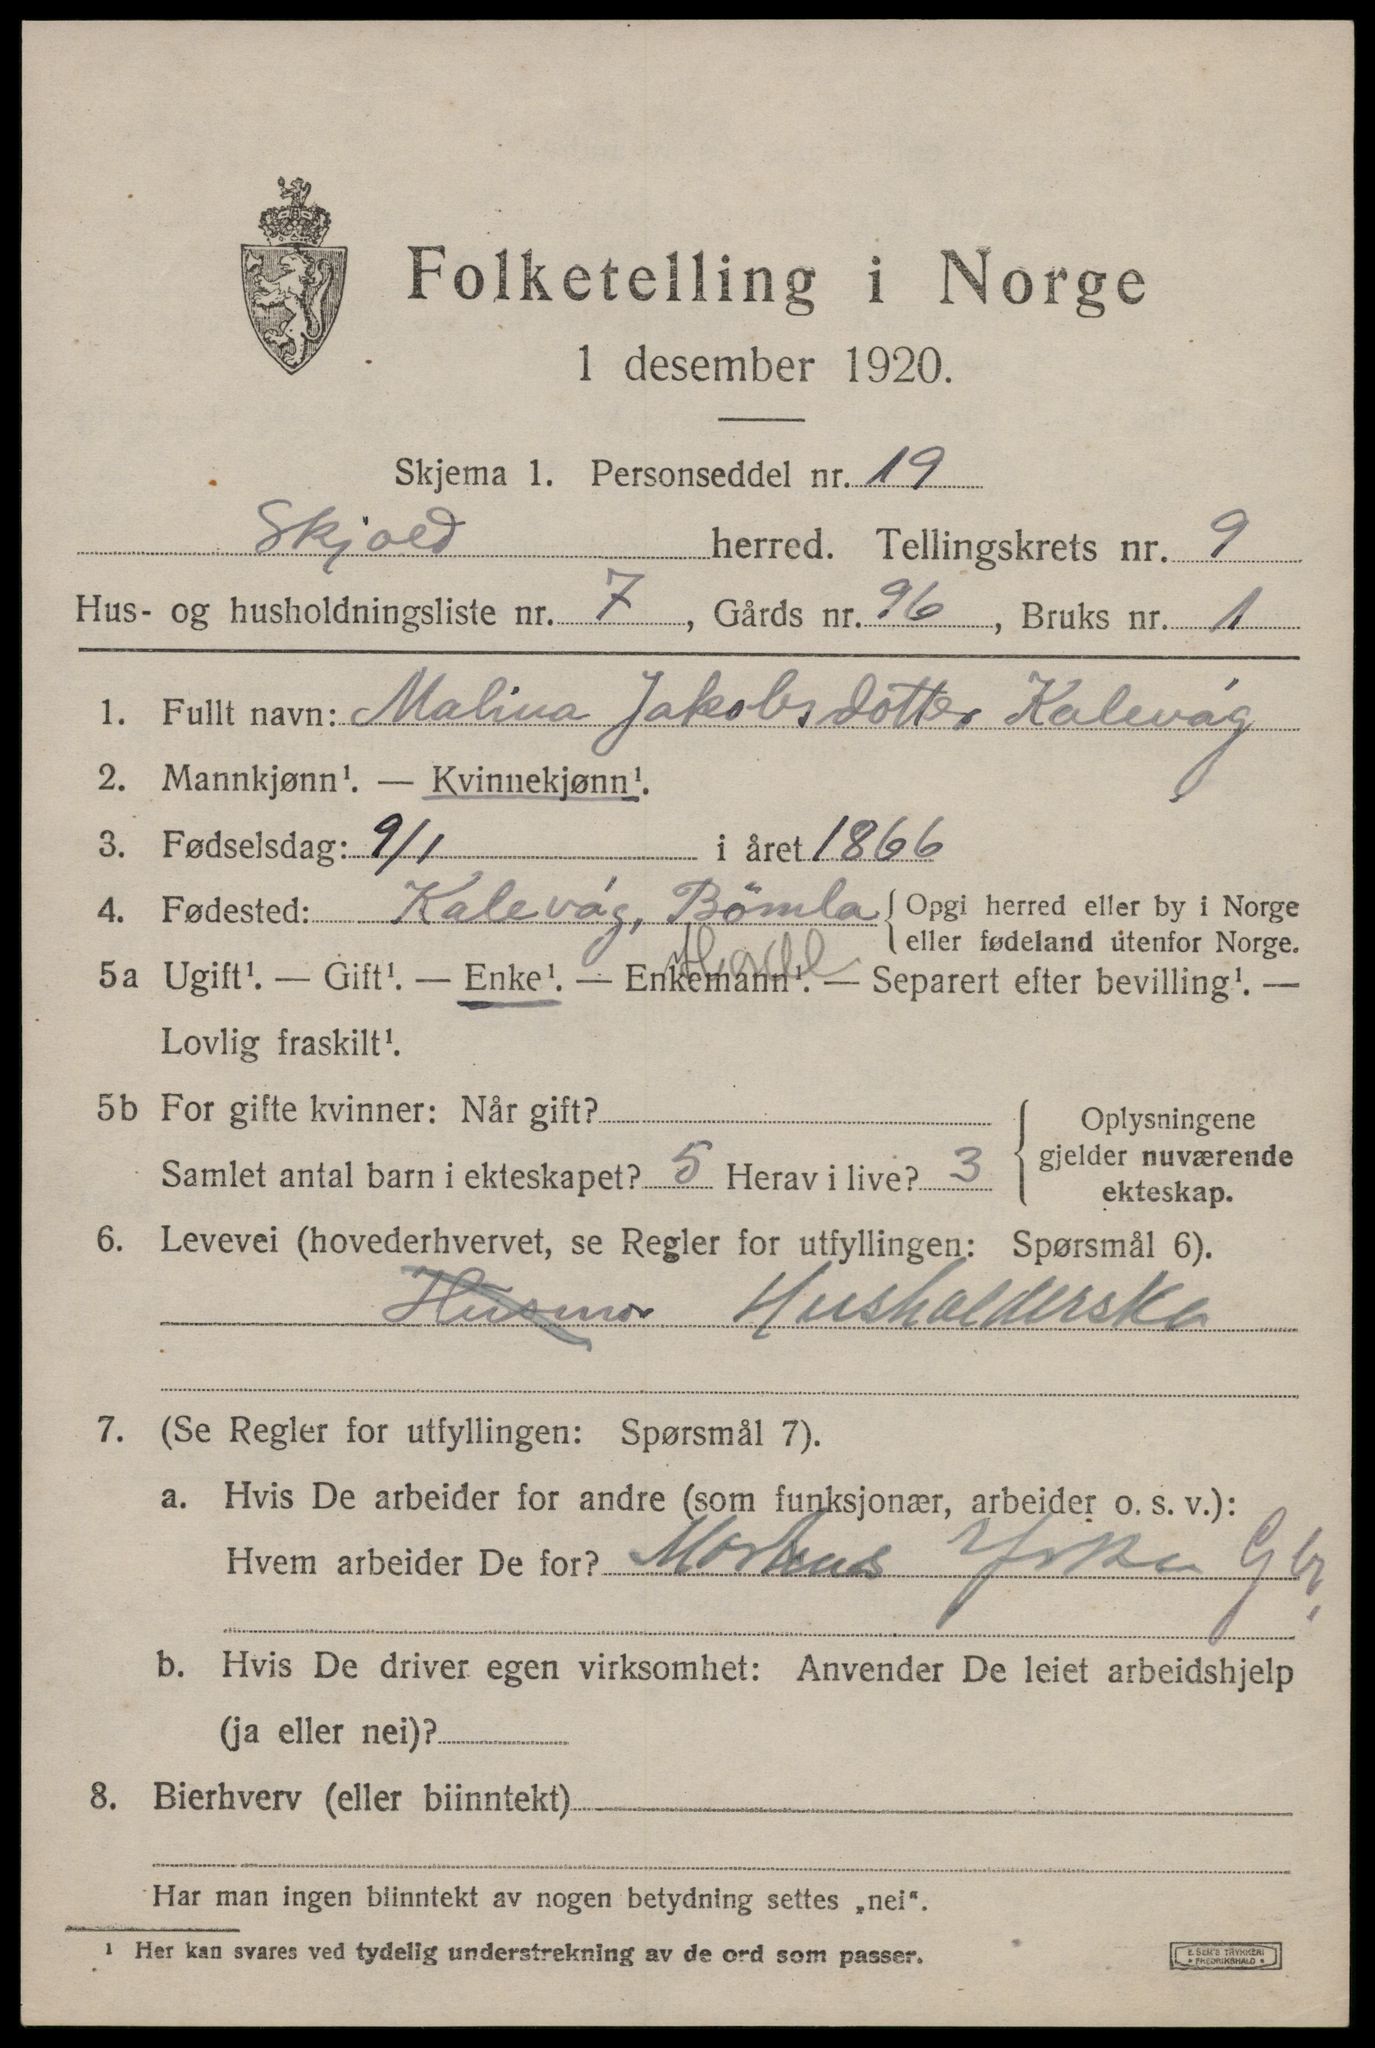 Folketelling i Norge
1 desember 1920.
Skjema 1. Personseddel nr. 19
Skjold herred. Tellingskrets nr. 9
Hus- og husholdningsliste nr. 7, Gårds nr. 96, Bruks nr. 1
1. Fullt navn: Malina Jakobsdotter Kalevåg
2. Mannkjønn¹. — Kvinnekjønn¹.
3. Fødselsdag: 9/1 i året 1866
4. Fødested: Kalevåg, Bömla { Opgi herred eller by i Norge
eller fødeland utenfor Norge.
Hordl
5a Ugift¹. — Gift¹. — Enke¹. — Enkemann¹. — Separert efter bevilling¹. —
Lovlig fraskilt¹.
5b For gifte kvinner: Når gift?
Samlet antal barn i ekteskapet? 5 Herav i live? 3
{ Oplysningene
gjelder nuværende
ekteskap.
6. Levevei (hovederhvervet, se Regler for utfyllingen: Spørsmål 6).
Husmor Husholderska
7. (Se Regler for utfyllingen: Spørsmål 7).
a. Hvis De arbeider for andre (som funksjonær, arbeider o. s. v.):
Hvem arbeider De for? Gbr.
b. Hvis De driver egen virksomhet: Anvender De leiet arbeidshjelp
(ja eller nei)?
8. Bierhverv (eller biinntekt)
Har man ingen biinntekt av nogen betydning settes „nei“.
¹ Her kan svares ved tydelig understrekning av de ord som passer.
E. SEM'S TRYKKERI
• FREDRIKSHALD •